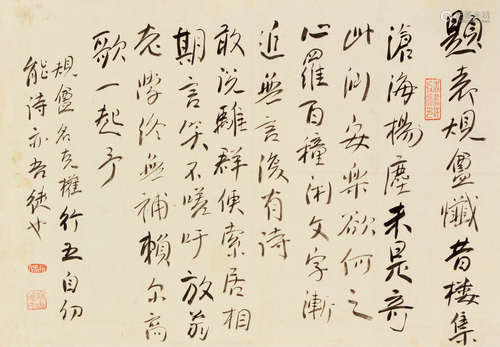 題袁規盦懺昔樓集
滄海揚塵未是奇
此安樂欲何之
心羅百種閑文字漸
無言後有詩
敢說離群便索居相
期言笑不嗟吁放翁
老學終無補賴尔高
歌一起予
規盦名克權行五自幼
能詩亦吾徒也